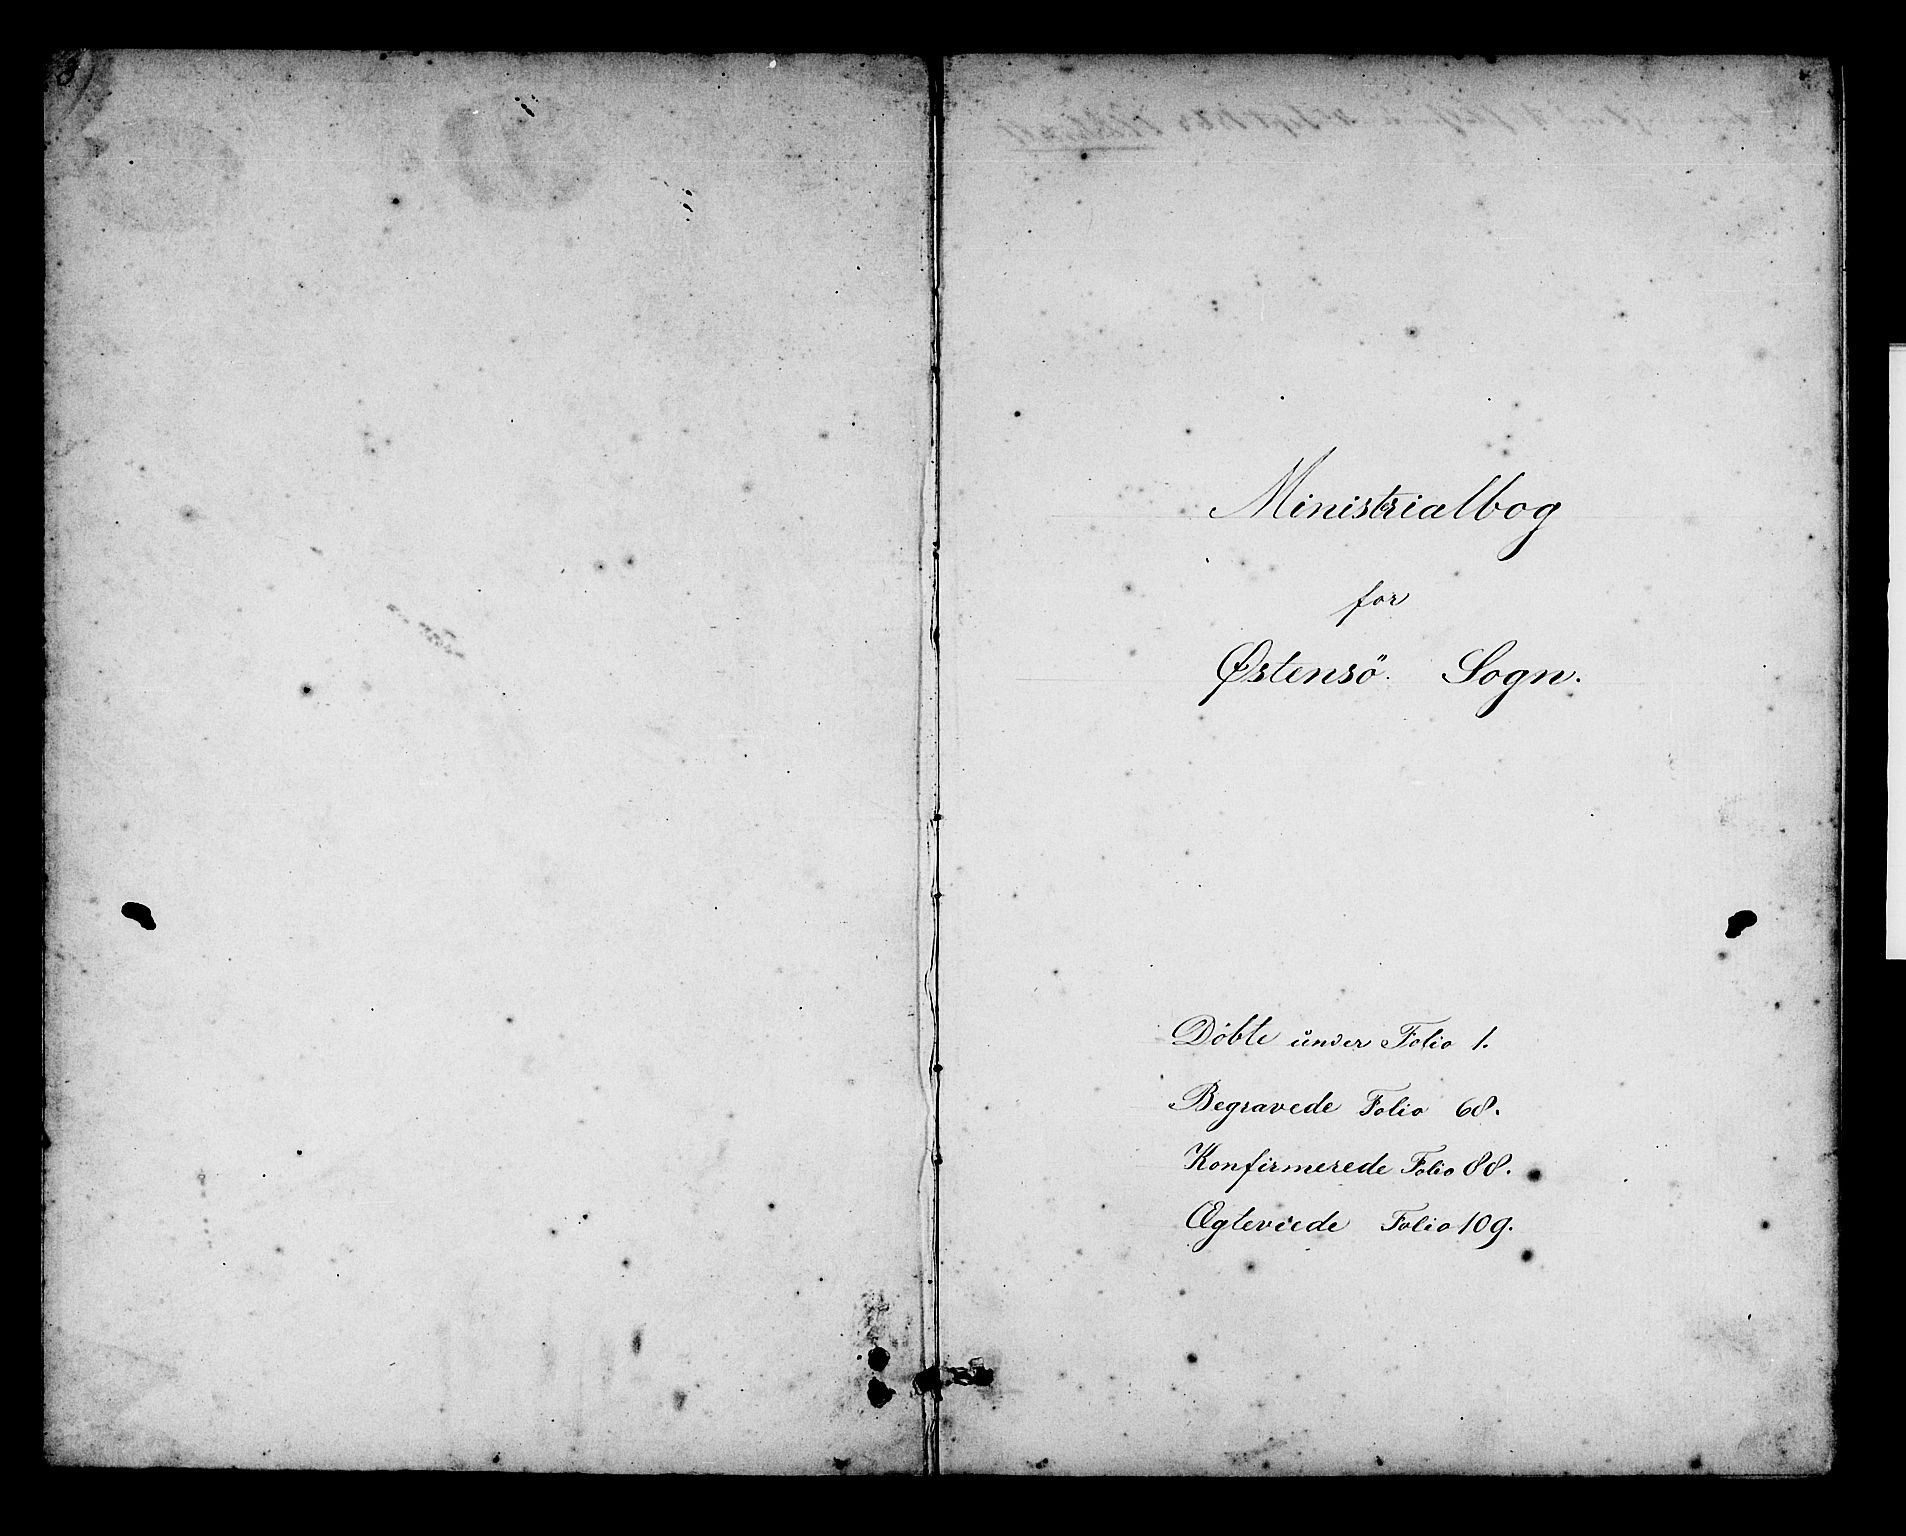 Ministrialbog
for
Østensö. Sogn.
Döbte under Folio 1.
Begravede Folio 68.
Konfirmerede Folio 88.
Ægteviede Folio 109.